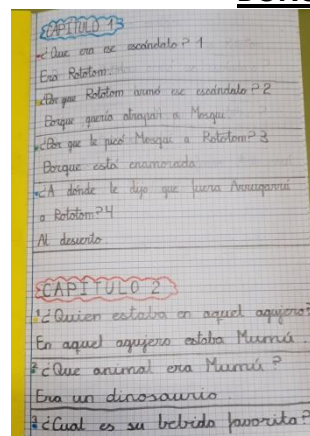 CAPÍTULO 1
¿Que era ese escándalo? 1
Era Rototom.
¿Por que Rototom armó ese escándalo? 2
Porque quería atrapar a Mosqui.
¿Por que le picó Mosqui a Rototom? 3
Porque está enamorada
¿A dónde le dijo que fuera
a Rototom? 4
Al desierto.
CAPÍTULO 2
1 ¿Quien estaba en aquel agujero?
En aquel agujero estaba Mumú.
2 ¿Que animal era Mumú?
Era un dinosaurio.
3 ¿Cual es su bebida favorita?